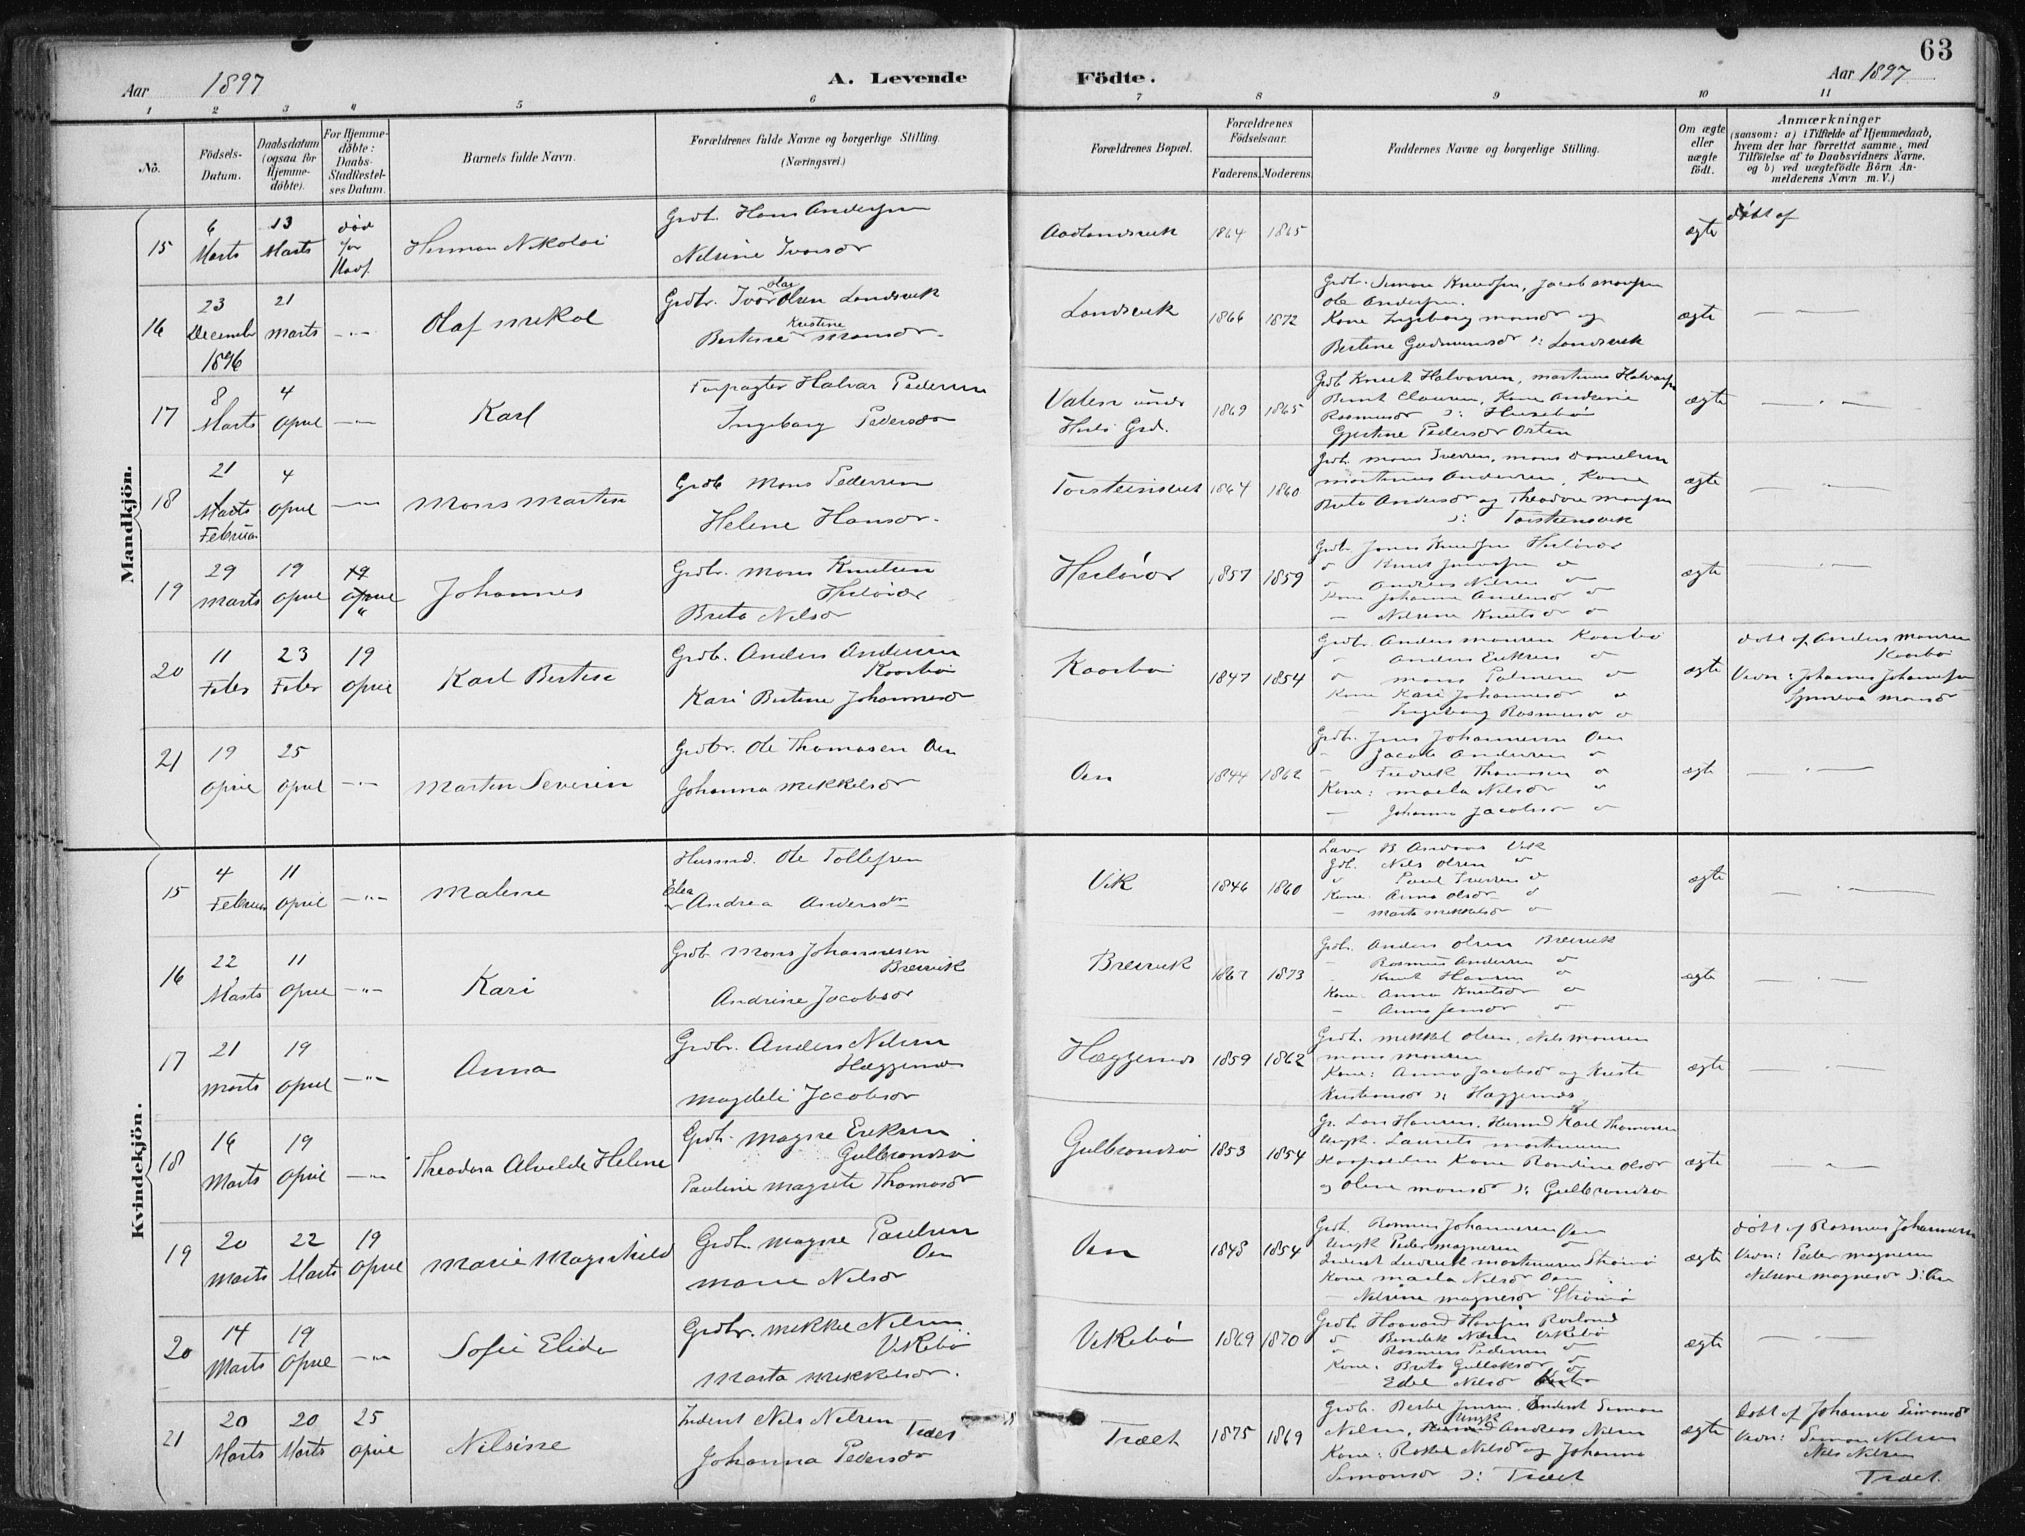 63
Aar 1897
A. Levende Födte.
Aar 1897
1 2 3 4 5 6 7 8 9 10 11
No.
Födsels-Datum.
Daabsdatum (ogsaa for Hjemme-döbte).
For Hjemme-döbte: Daabs-Stadfæstel-ses Datum.
Barnets fulde Navn.
Forældrenes fulde Navne og borgerlige Stilling. (Næringsvei.)
Forældrenes Bopæl.
Forældrenes Födselsaar.
Faderens. Moderens.
Faddernes Navne og borgerlige Stilling.
Om ægte eller uægte födt.
Anmærkninger
(saasom: a) i Tilfælde af Hjemmedaab, hvem der har forrettet samme, med Tilföielse af to Daabsvidners Navne, og b) ved uægtefödte Börn An-melderens Navn m. V.)
Mandkjön.
15 6 Marts 13 Marts död for Herman Nikolai Grdb. Hans Andersen
Nelsine 1864 1865 ægte döbt af
16 23 December 1896 21 Marts -"- Olaf Mikal Grdbr. Ivar Olsen Landsvik
Bertine Kristine Monsdr. Landsvik 1866 1872
Grdbr. Simon Knudsen, Jacob Monsen
Ole Andersen.
Kone Ingeborg Monsdr og
Bertine Gudmundsdr ): Landsvik ægte — " —
17 8 Marts 4 April -"- Karl Forpagter Halvar Pedersen
Ingeborg Pedersdr 1869 1865
Grdb Knut Halvorsen, Martinus Halvorsen
Bernt Clausen, Kone Andrine
Rasmusdr ): Husebö
Gjertine Pedersdr Osten ægte — " —
18 21 Marts Februar 4 April -"- Mons Martin Grdb Mons Pedersen
Helene Hansdr. Torsteinsvik 1864 1860
Grdb. Mons Iversen, Mons Danielsen
Martinus Andersen, Kone
Brita Andersdr og Theodora Monsen
): Torsteinsvik ægte — " —
19 29 Marts 19 April 19 April " Johannes Grdbr. Mons Knutsen
Herlövær
Brita Nilsdr Herlövær 1857 1859
Grdbr. Jonas Knudsen Herlövær
Andreas Nilsen
Kone Johanna Andersdr
— Nilsine Knutsdr ægte — " —
20 11 Febr 23 Febr 19 April Karl Bertin Grdb. Anders Andersen
Kaarbö
Kari Bertine Johannesdr Kaarbö 1847 1854
Grdbr. Anders Monsen Kaarbö
" Anders Eriksen
" Mons
Kone Kari Johannesdr
— Ingeborg Rasmusdr ægte döbt af Anders Monsen
Kaarbö
Vidn: Johannes Johannesen
Synneva Monsdr
21 19 April 25 April -"- Martin Severin Grdbr. Ole Thomasen Oen
Johanna Mikkelsdr Oen 1844 1862
Grdb. Jens Johannesen Oen
— Jacob Andersen
— Fredrik Thomasen
Kone: Maela Nilsdr
— Johanna Jacobsdr ægte — " —
Kvindekjön.
15 4 Februar 11 April -"- Malene Husmd. Ole Tollefsen
Elea Andrea Andersdr Vik 1846 1860
Lærer B Vik
Gb. Nils Olsen
Paul Iversen
Kone Anna Olsdr
— Marta Mikkelsdr ægte — " —
16 22 Marts 11 April -"- Kari Grdb. Mons Johannesen
Breivik
Andrine Jacobsdr Breivik 1867 1873
Grdb. Anders Olsen Breivik
— Rasmus Andersen
Knut Hansen
Kone. Anna Knutsdr
— Anna Jensdr ægte — " —
17 21 Marts 19 April -"- Anna Grdbr. Anders Nilsen
Hæggernæs
Magdeli Jacobsdr Hæggernæs 1859 1862
Grdb. Mikkel Olsen, Nils Monsen
Mons Monsen
Kone: Anna Jacobsdr og Kristi
Kristiansdr ): Hæggernæs ægte — " —
18 16 Marts 19 April -"- Theodora Alvilde Helene Grdb. Magne Eriksen
Gulbrandsö
Pauline Magrete Thomasdr Gulbrandsö 1853 1854
Gr. Lars Hansen, Husmd Karl Thomasen
Ungk. Laurits Martinusen
Kone Randine Olsdr
og Oline Monsdr ): Gulbrandsö ægte — " —
19 20 Marts 22 Marts 19 April Marie Magnhild Grdb. Magne Paulsen
Oen
Marie Nilsdr Oen 1848 1854
Grdb. Rasmus Johannesen Oen
Ungk Peder Magnesen
Inderst Ludvik Martinusen Strömö
Kone Maela Nilsdr Oen
— Nilsine Magnesdr Strömö ægte döbt af Rasmus Johannesen
Vidn: Peder Magnesen
Nilsine Magnesdr ): Oen
20 14 Marts 19 April -"- Sofie Elida Grdbr. Mikkel Nilsen
Vikebö
Marta Mikkelsdr. Vikebö 1869 1870
Grdb Haavard Hansen
" Bendik Nilsen Vikebö
" Rasmus Pedersen
Kone: Brita Gullaksdr
Edel Nilsdr ægte — " —
21 20 Marts 20 Marts 25 April Nilsine Inderst Nils Nilsen
Træet
Johanna Pedersdr Træet 1875 1869
Grdb. Jensen, Inderst Simon
Nilsen, Ungk Andreas Nilsen
Kone: Rakel Nilsdr og Johanna
Simonsdr ): Træet ægte Döbt af Johanna Simonsdr
Vidn: Simon Nilsen
Nils Nilsen
Træet.